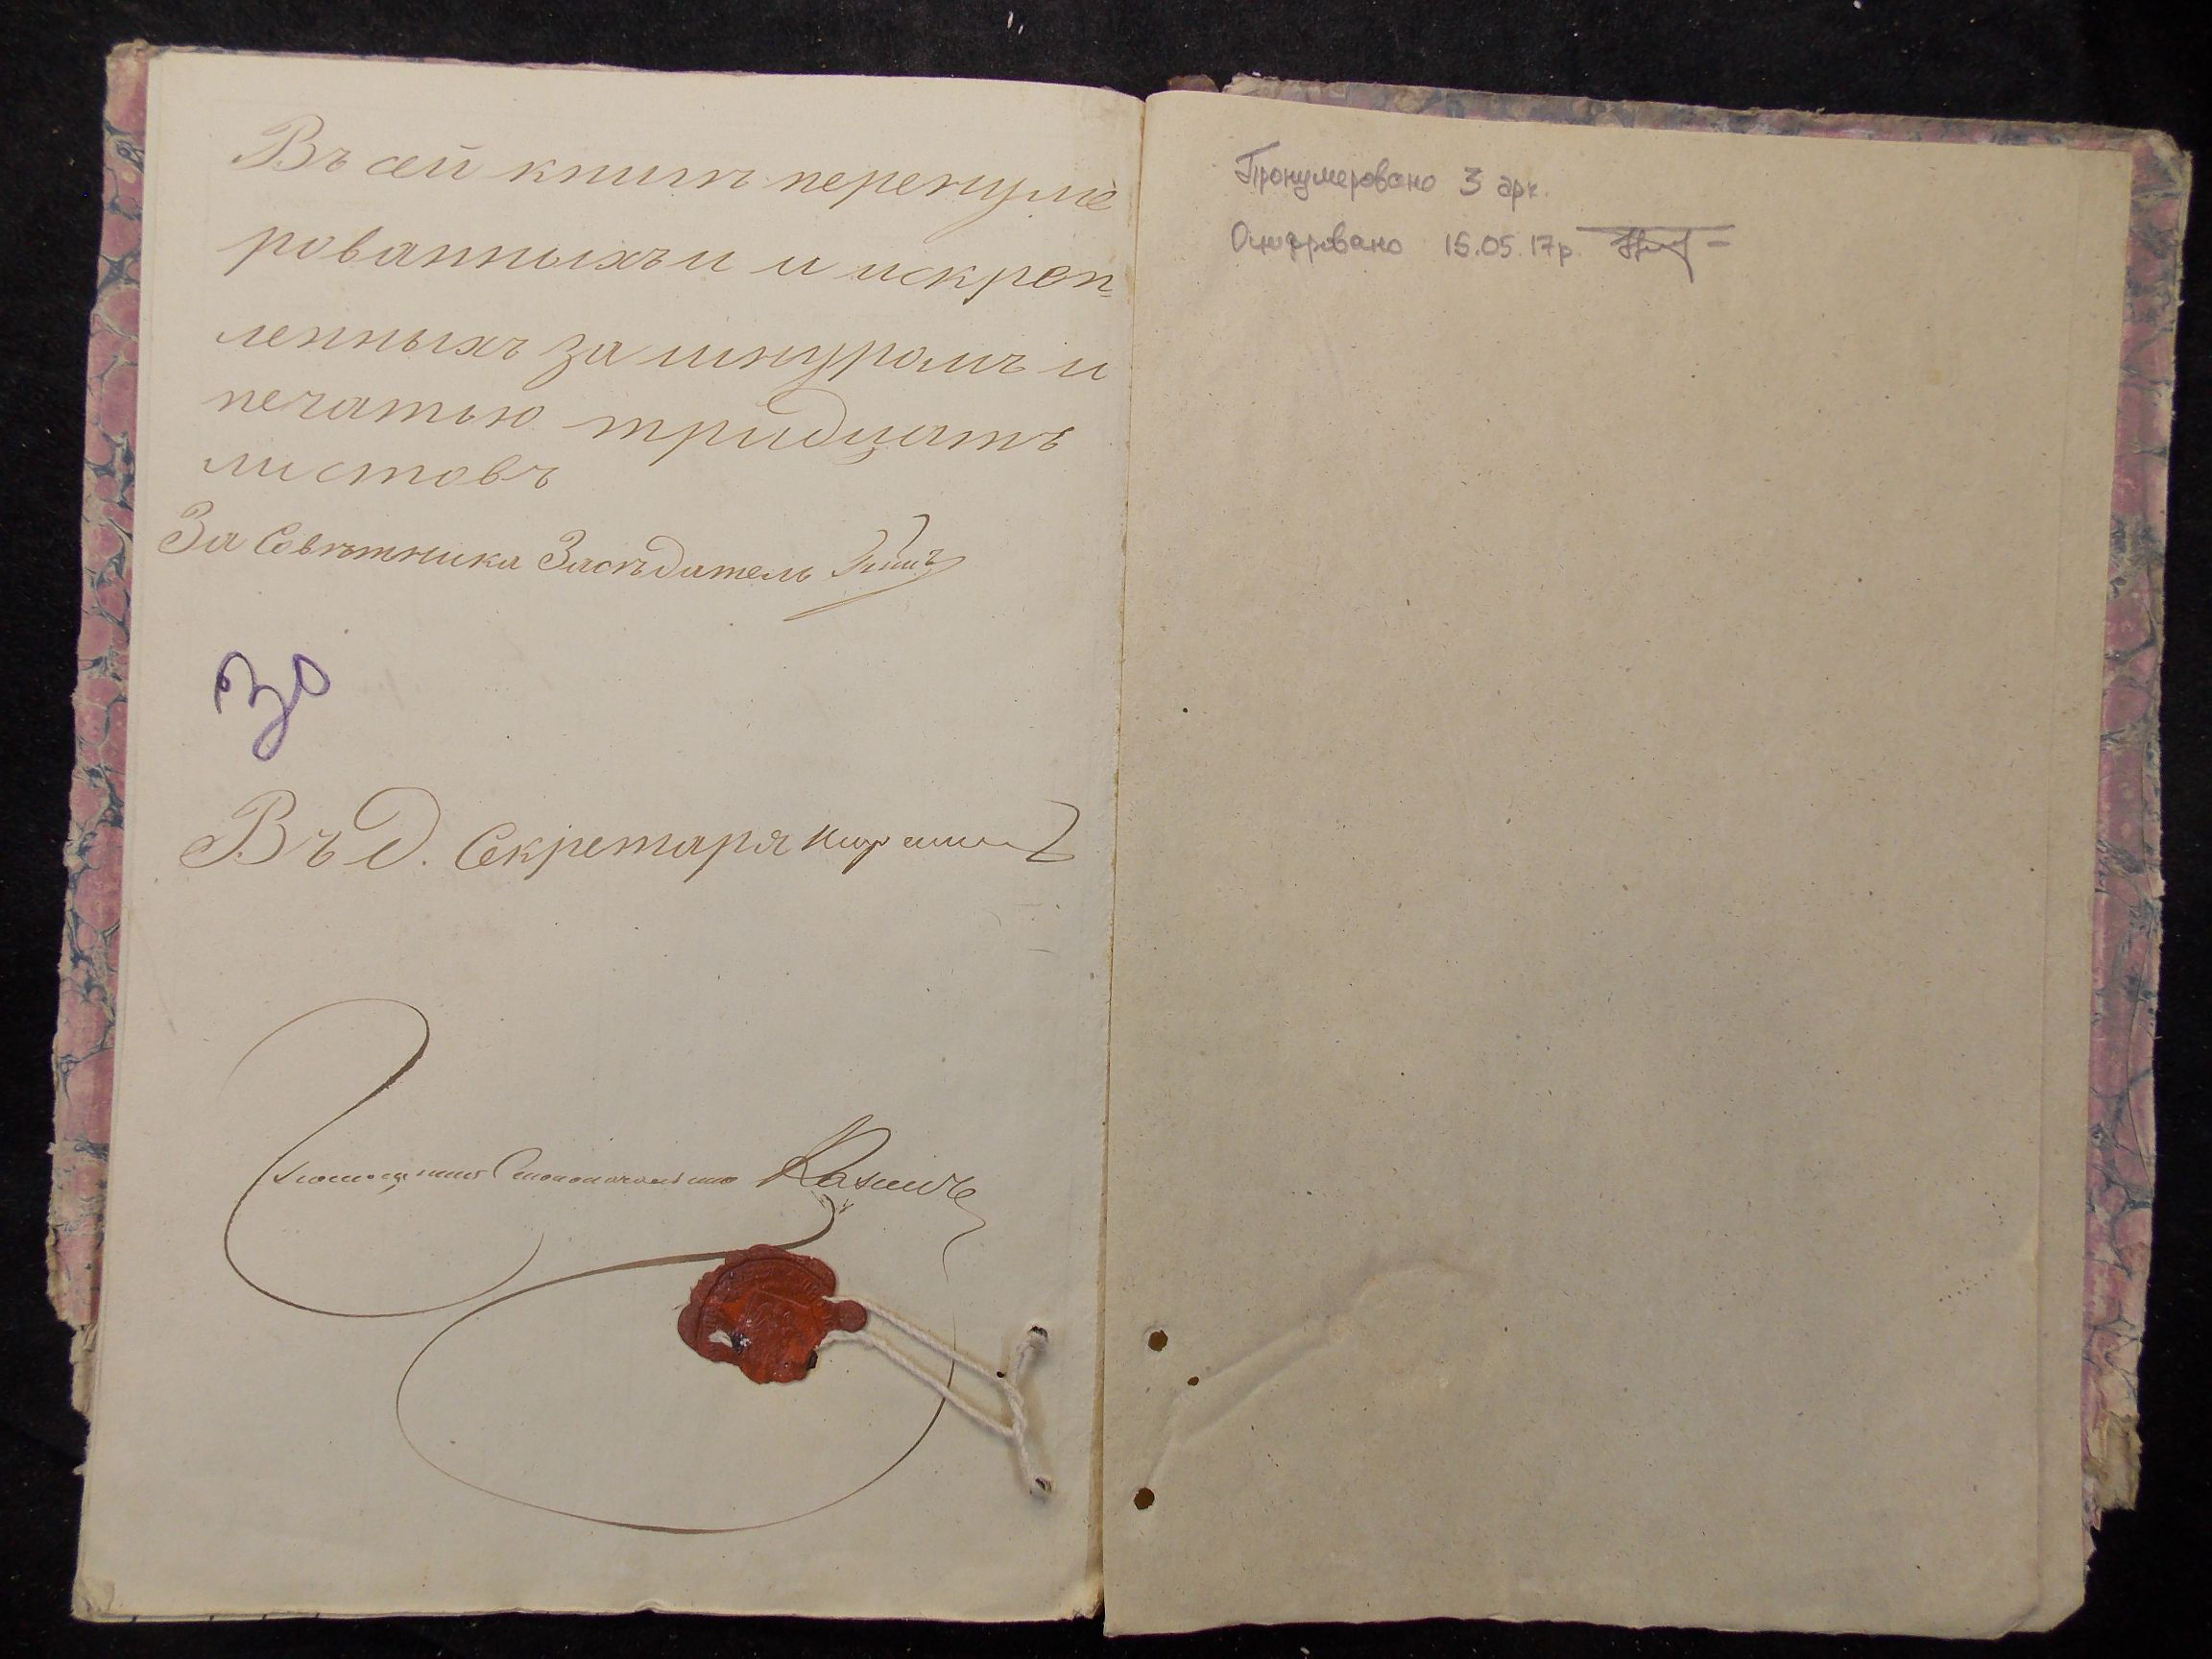 Въ сей книгѣ перенуме
рованныхъ и и искреп-
ленныхъ за шнуромъ и
печатью тридцать
листовъ
За Совѣтника Засѣдатель
30
Въ д. Секретаря
Пронумеровано 3 арк.
Оцифровано 15.05.17р.